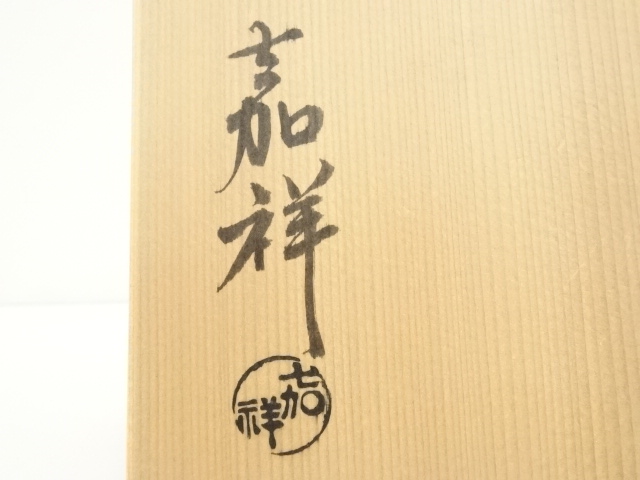 嘉祥
嘉祥